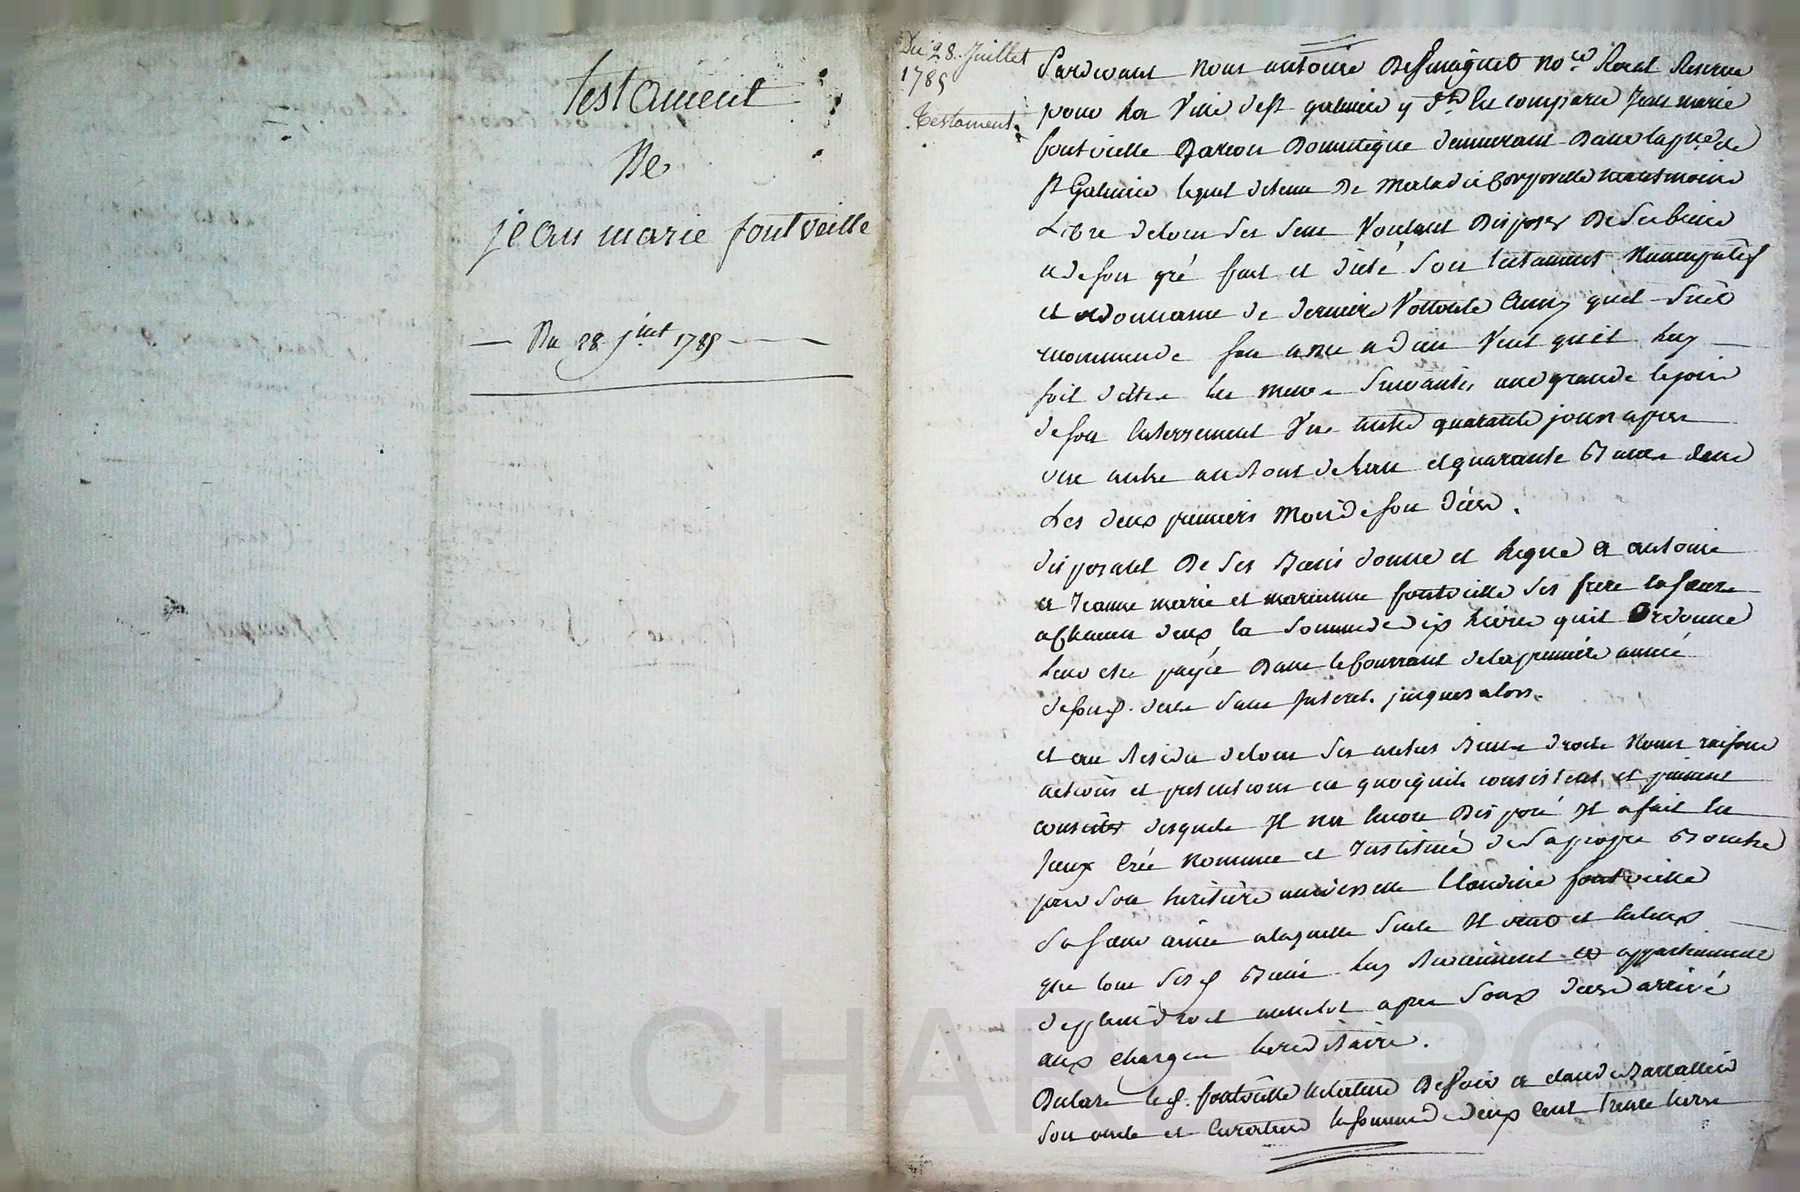 testament
De
jean marie fontvieille
Du 28 jllet 1785
Du 28. Juillet
1785
Testament.
Pardevant Nous antoine Desmagnet no.re Royal Reservé
pour La Ville de st galmier y Sné fut comparu Jean marie
fontvieille Garcon Domestique demeurant Dans la psse de
st Galmier lequel detenu De Maladie Corporelle neantmoins
Libre de tous ses sens Voulant Disposer De ses biens
a de son gré fait et dicté Son testament Nuncupatif
et ordonnance de derniere Vollonté Comme quel Suit
recommande son ame a dieu Veut quil Luy
soit dittes les messes Suivantes, une grande le jour
de son Enterrement Une autre quarante jours apres
une autre au bout de lan et quarante Basses dans
Les deux premiers Mois de son deces.
disposant De ses Biens donne et Legue a antoine
a Jeanne marie et marianne fontvieille ses frere et soeurs
a Chacun deux la Somme de dix Livres quil Ordonne
Leur etre payée Dans le Courrant de la premiere année
de son d. deces sans Interet jusques alors.
et au Residu de tous ses autres Biens droits Noms raisons
actions et pretentions en quoi quils consistent et puissent
consister desquels Il na Encore Disposé Il a fait
Créé Nomme et Institué de Sa propre Bouche
pour Son heritiere universelle Claudine fontvieille
Sa soeur ainée a laquelle Seule Il veut et entend
que tous ses d. Biens Luy Reviennent et appartiennent
de plein droit aussitot apres Son deces arrivé
aux charges hereditaires.
Declare le d. fontvieille testateur Devoir a claude
Son oncle et Curateur la somme de deux Cent trente livres
Pascal CHAREYRON